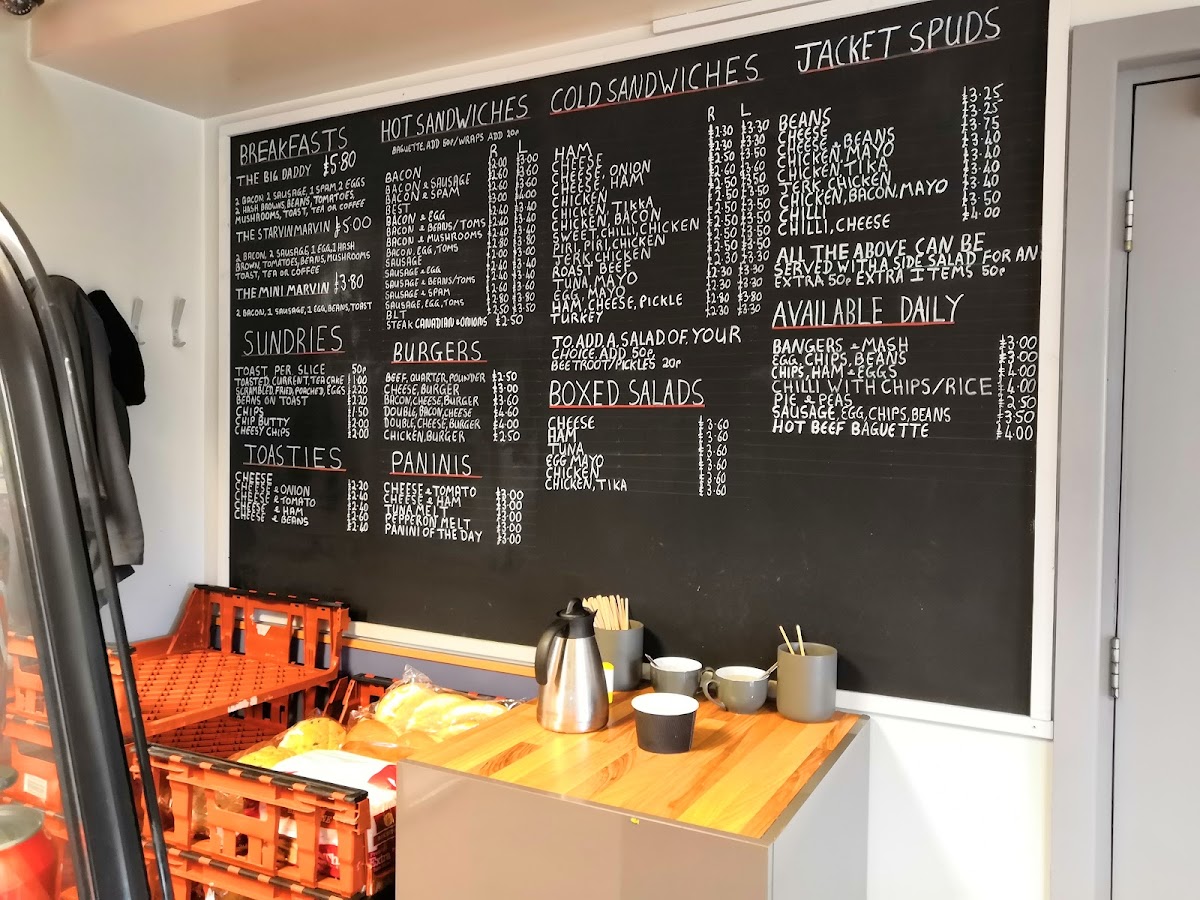 BREAKFASTS
THE BIG DADDY £5.80
2 BACON, 2 SAUSAGE, 1 SPAM, 2 EGGS
2 HASH BROWNS, BEANS, TOMATOES
MUSHROOMS, TOAST, TEA OR COFFEE
THE STARVIN MARVIN £5.00
2 BACON, 2 SAUSAGE, 1 EGG, 1 HASH
BROWN, TOMATOES, BEANS, MUSHROOMS
TOAST, TEA OR COFFEE
THE MINI MARVIN £3.80
2 BACON, 1 SAUSAGE, 1 EGG, BEANS, TOAST
SUNDRIES
TOAST PER SLICE 50p
TOASTED, CURRENT, TEA CAKE £1.00
SCRAMBLED, FRIED, POACHED, EGGS £2.20
BEANS ON TOAST £2.20
CHIPS £1.50
CHIP BUTTY £2.00
CHEESY CHIPS £2.00
TOASTIES
CHEESE £2.20
CHEESE & ONION £2.40
CHEESE & TOMATO £2.40
CHEESE & HAM £2.60
CHEESE & BEANS £2.60
HOT SANDWICHES
BAGUETTE, ADD 50p/WRAPS ADD 20p
R L
BACON £2.00 £3.00
BACON & SAUSAGE
BACON & SPAM
BEST
BACON & EGG
BACON & BEANS/TOMS
BACON & MUSHROOMS
BACON, EGG, TOMS
SAUSAGE
SAUSAGE & EGG
SAUSAGE & BEANS/TOMS
SAUSAGE & SPAM
SAUSAGE, EGG, TOMS
BLT £2.50 £3.50
STEAK CANADIAN & ONIONS £2.50
BURGERS
BEEF, QUARTER, POUNDER £2.50
CHEESE, BURGER £3.00
BACON, CHEESE, BURGER £3.60
DOUBLE, BACON, CHEESE £4.60
DOUBLE, CHEESE, BURGER £4.00
CHICKEN, BURGER £2.50
PANINIS
CHEESE & TOMATO £3.00
CHEESE & HAM £3.00
TUNA MELT £3.00
PEPPERON MELT £3.00
PANINI OF THE DAY £3.00
COLD SANDWICHES
R L
HAM £2.30 £3.30
CHEESE £2.30 £3.30
CHEESE, ONION
CHEESE, HAM
CHICKEN
CHICKEN, TIKKA
CHICKEN, BACON
SWEET, CHILLI, CHICKEN
PIRI, PIRI, CHICKEN
JERK, CHICKEN
ROAST BEEF
TUNA, MAYO
EGG, MAYO
HAM, CHEESE, PICKLE
TURKEY £2.30 £3.30
TO ADD A SALAD OF YOUR
CHOICE ADD 50p
BEETROOT/PICKLES 20p
BOXED SALADS
CHEESE £3.60
HAM £3.60
TUNA £3.60
EGG MAYO £3.60
CHICKEN £3.60
CHICKEN, TIKA £3.60
JACKET SPUDS
BEANS £3.25
CHEESE £3.25
CHEESE & BEANS £3.75
CHICKEN, MAYO £3.40
CHICKEN, TIKA £3.40
JERK, CHICKEN £3.40
CHICKEN, BACON, MAYO £3.40
CHILLI £3.50
CHILLI, CHEESE £4.00
ALL THE ABOVE CAN BE
SERVED WITH A SIDE SALAD FOR AN
EXTRA 50p EXTRA ITEMS 50p
AVAILABLE DAILY
BANGERS & MASH £3.00
EGG, CHIPS, BEANS £3.00
CHIPS, HAM & EGGS £4.00
CHILLI WITH CHIPS/RICE £4.00
PIE & PEAS £2.50
SAUSAGE, EGG, CHIPS, BEANS £3.50
HOT BEEF BAGUETTE £4.00